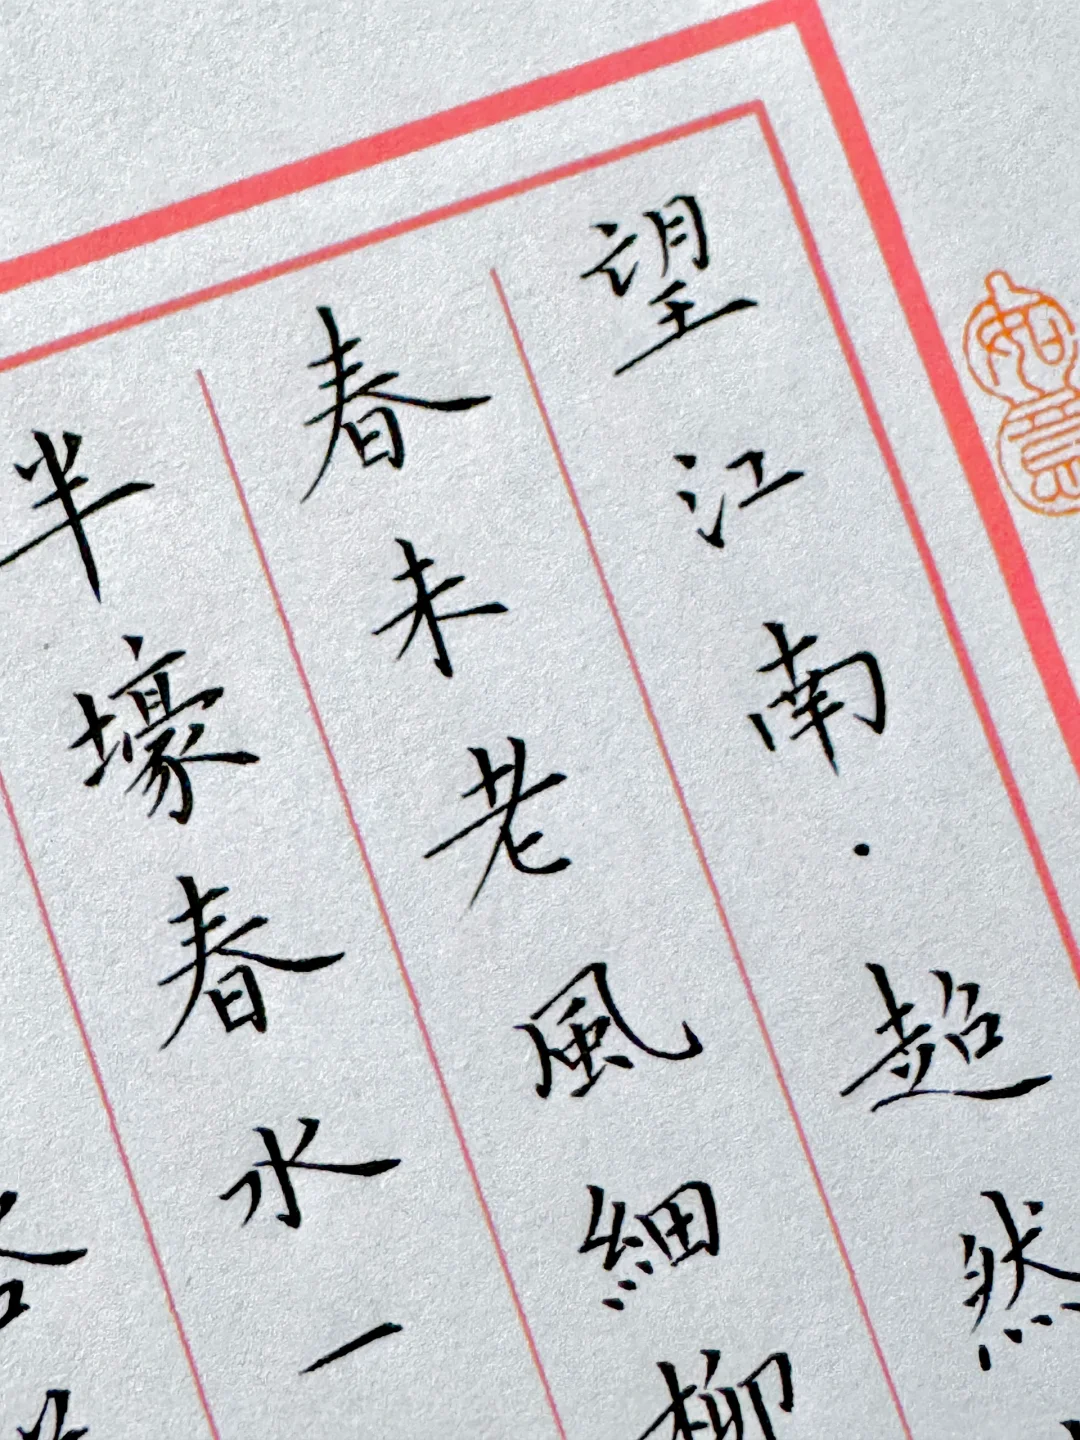 望江南·超然
春未老風細柳
半壕春水一